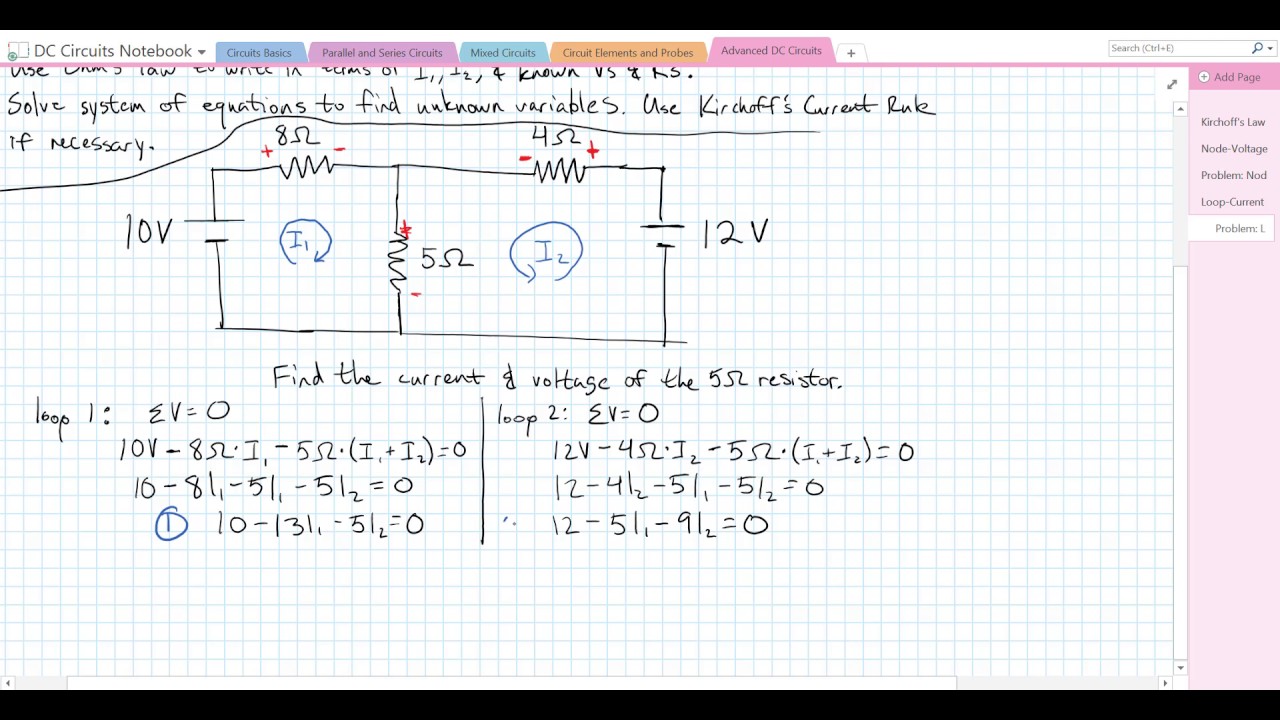 DC Circuits Notebook
Circuits Basics
Parallel and Series Circuits
Mixed Circuits
Circuit Elements and Probes
Advanced DC Circuits
Search (Ctrl+E)
Add Page
Kirchoff's Law
Node-Voltage
Problem: Nod
Loop-Current
Problem: L
Use Ohm's law to write in terms of I₁, I₂, & known Vs & Rs.
Solve system of equations to find unknown variables. Use Kirchoff's Current Rule
if necessary.
8Ω
4Ω
+ -
- +
10V
I₁
+
5Ω
-
I₂
12V
Find the current & voltage of the 5Ω resistor.
loop 1: ΣV=0
10V-8Ω·I₁-5Ω·(I₁+I₂)=0
10-8I₁-5I₁-5I₂=0
① 10-13I₁-5I₂=0
loop 2: ΣV=0
12V-4Ω·I₂-5Ω·(I₁+I₂)=0
12-4I₂-5I₁-5I₂=0
12-5I₁-9I₂=0